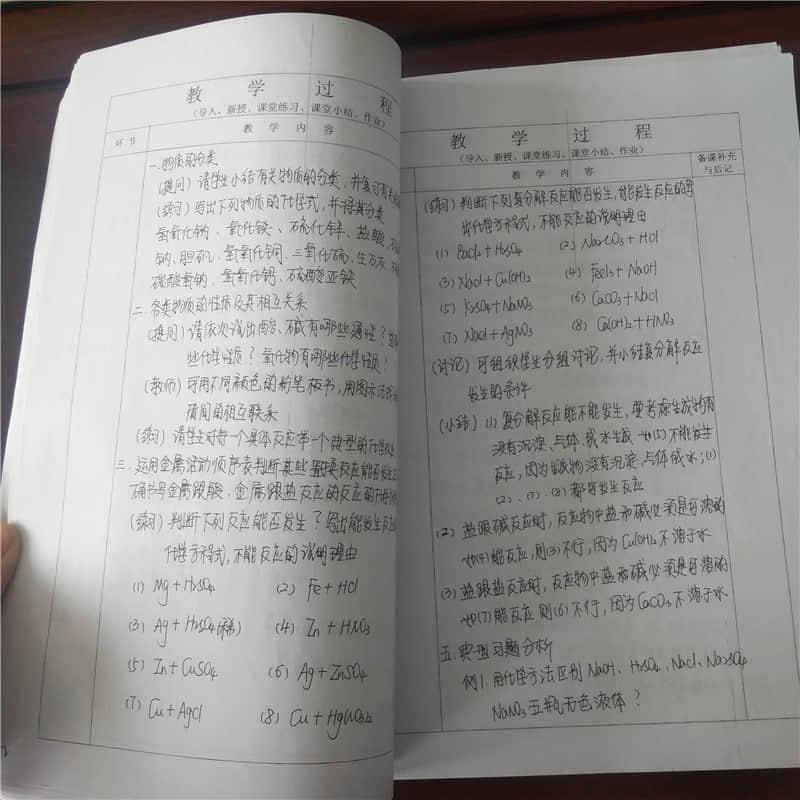 教 学 过 程
(导入、新授、课堂练习、课堂小结、作业)
环 节
教 学 内 容
一.物质的分类
(提问) 请学生小结有关物质的分类,并复习有关
(练习) 写出下列物质的化学式,并将其分类
氢氧化钠、氧化铁、石硫化锌、盐酸、
钠、胆矾、氢氧化铜、三氧化硫、生石灰、
碳酸氢钠、氢氧化钙、石硫酸亚铁
二.各类物质的性质及其相互关系
(提问) 请依次说出酸、碱有哪些通性?
些化学性质?氧化物有哪些化学性质!
(教师) 可用不同颜色的粉笔板书,用图示法
质间的相互联系
(练习) 请学生对每一个具体反应举一个典型的化学
三、运用金属活动顺序表判断某些置换反应能否发生,
确书写金属跟酸,金属跟盐反应的反应的化学
(练习) 判断下列反应能否发生?写出能发生反应
化学方程式,不能反应的说明理由
(1) Mg+H2SO4 (2) Fe+HCl
(3) Ag+H2SO4(稀) (4) Zn+HNO3
(5) Zn+CuSO4 (6) Ag+ZnSO4
(7) Cu+AgCl (8) Cu+Hg(NO3)2
教 学 过 程
(导入、新授、课堂练习、课堂小结、作业)
教 学 内 容
备课补充
与后记
(练习) 判断下列复分解反应能否发生,能发生反应的写
出化学方程式,不能反应的说明理由
(1) BaCl2+H2SO4 (2) Na2CO3+HCl
(3) NaCl+Cu(OH)2 (4) FeCl3+NaOH
(5) K2SO4+NaNO3 (6) CaCO3+NaCl
(7) NaCl+AgNO3 (8) Ca(OH)2+HNO3
(讨论) 可组织学生分组讨论,并小结复分解反应
发生的条件
(小结) (1) 复分解反应能不能发生,要考虑生成物有
没有沉淀、气体、或水生成 如(5)不能发生
反应,因为生成物没有沉淀、气体或水;(1)
(2)、(7)、(8)都可发生反应
(2) 盐跟碱反应时,反应物中盐和碱必须是可溶的
如(4)能反应,则(3)不行,因为Cu(OH)2不溶于水
(3) 盐跟盐反应时,反应物中盐和碱必须是可溶的
如(7)能反应 则(6)不行,因为CaCO3不溶于水
五.典型习题分析
例1.用化学方法区别NaOH、H2SO4、NaCl、Na2SO4
NaNO3五瓶无色液体?